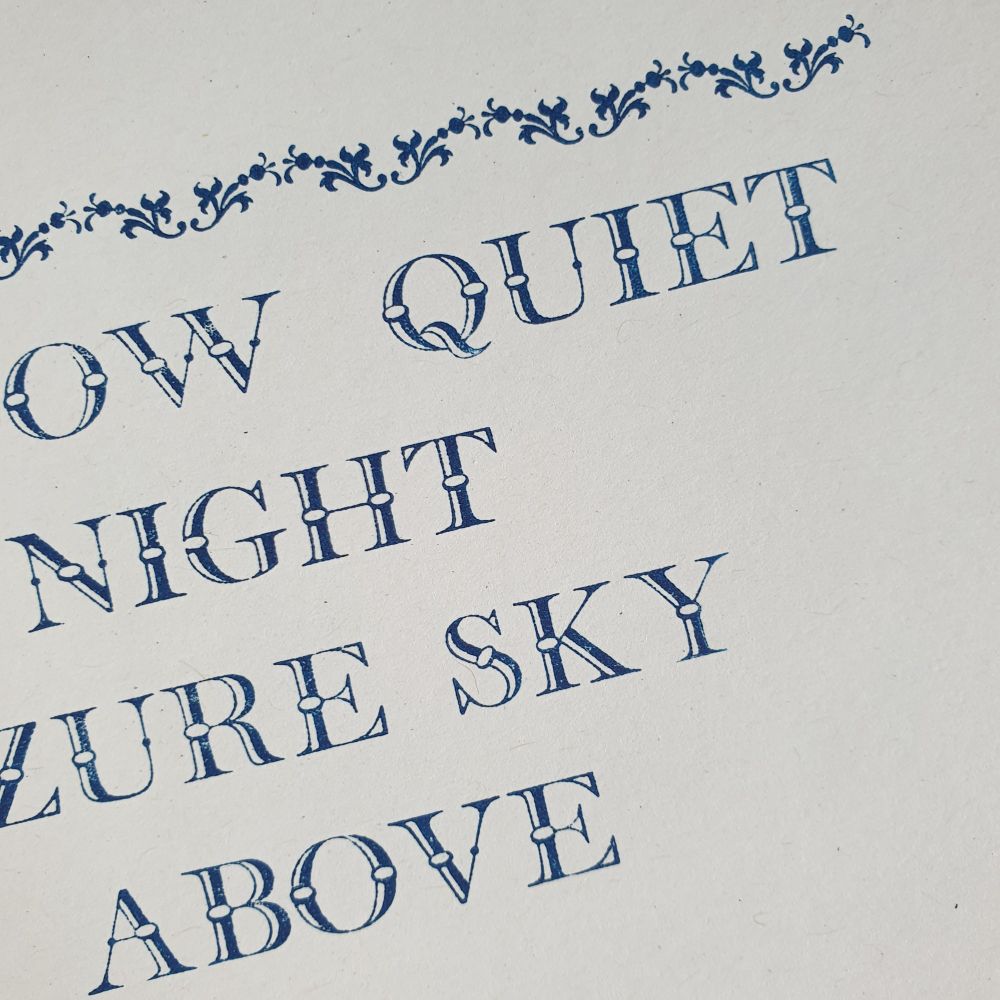 OW QUIET
NIGHT
ZURE SKY
ABOVE